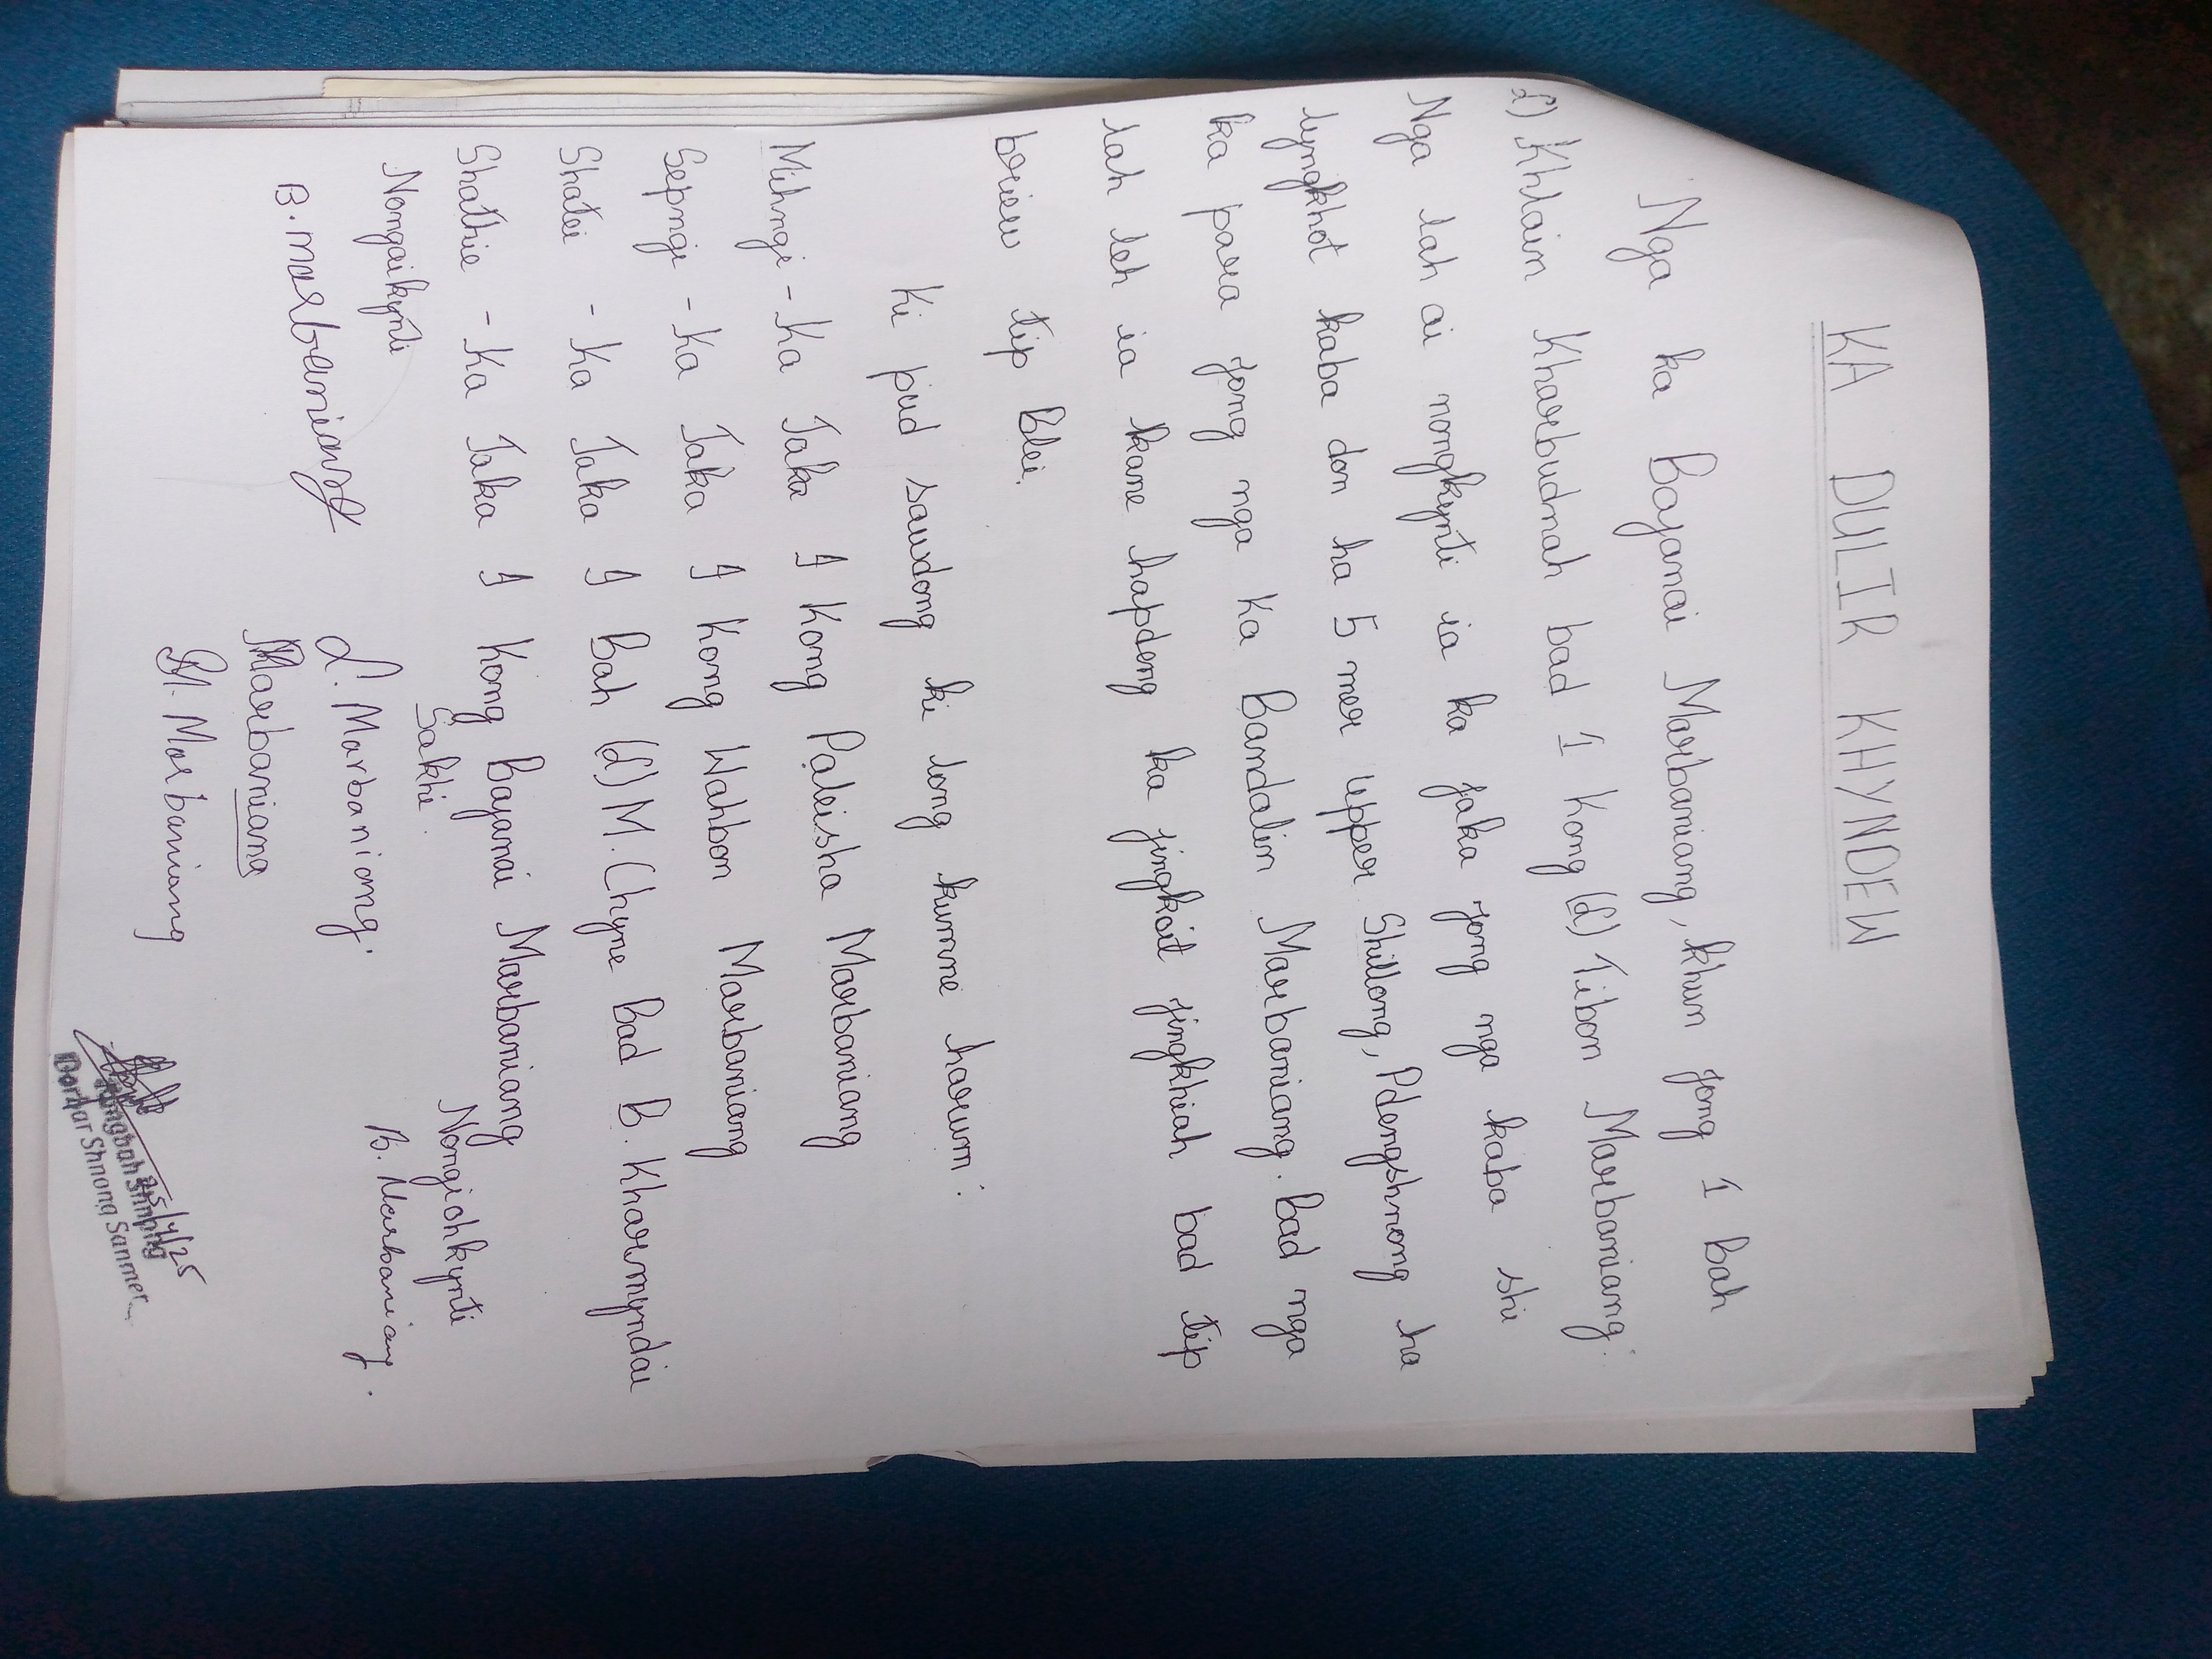 KA DULIR KHYNDEW
Nga ka Bajanai Marbaniang, khun jong 1 Bah
(L) Khlain Kharbudnah bad 1 Kong (L) Tibon Marbaniang.
Nga lah ai nongkynti ia ka jaka jong nga kaba shi
lyngkhot kaba don ha 5 mer upper Shillong, Pdengshnong ha
ka para jong nga Ka Bandalin Marbaniang. Bad nga
lah leh ia kane hapdeng ka jingkoit jingkhiah bad tip
briew tip Blei.
Ki pud sawdong ki long kumne harum:
Mihngi - Ka Jaka I Kong Paleisha Marbaniang
Sepngi - Ka Jaka I Kong Wahbon Marbaniang
Shatei - Ka Jaka I Bah (L) M. Chyne Bad B. Kharmyndai
Shathie - Ka Jaka I Kong Bajanai Marbaniang
Nongaikynti Sakhi. Nongiohkynti
B. Marbaniang L. Marbaniang. B. Marbaniang.
Marbaniang
M. Marbaniang
25/4/25
Rangbah Shnong
Dorbar Shnong Sanmer